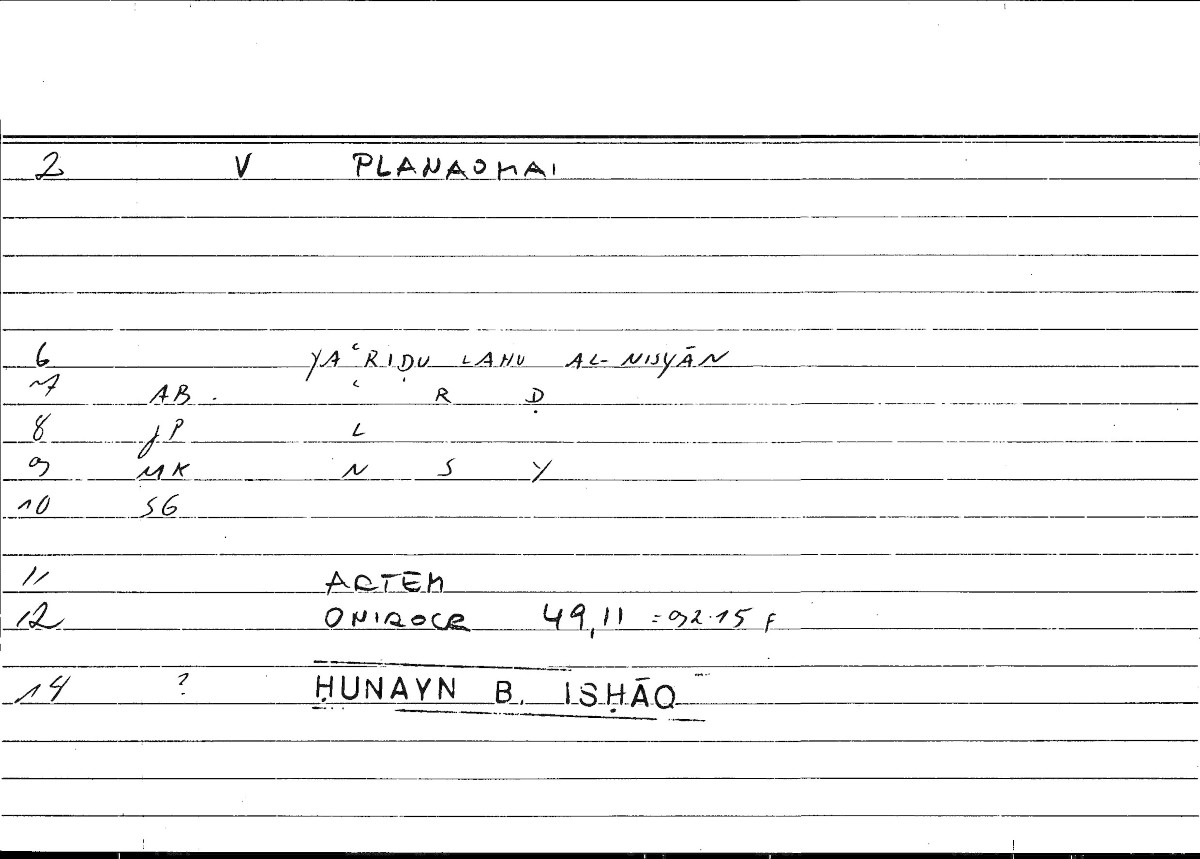 2 V PLANAOMAI
6 YAʿRIḌU LAHU AL-NISYĀN
7 AB. ʿ R Ḍ
8 JP L
9 MK N S Y
10 SG
11 ARTEM
12 ONIROCR 49,11 = 92.15 f
14 ? ḤUNAYN B. ISḤĀQ